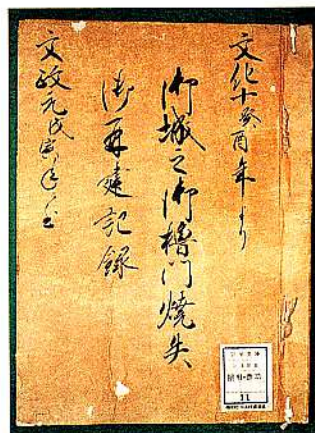 文化十癸酉年より
御城之御櫓門焼失
御再建記録
文政元戊寅年ニ至
11